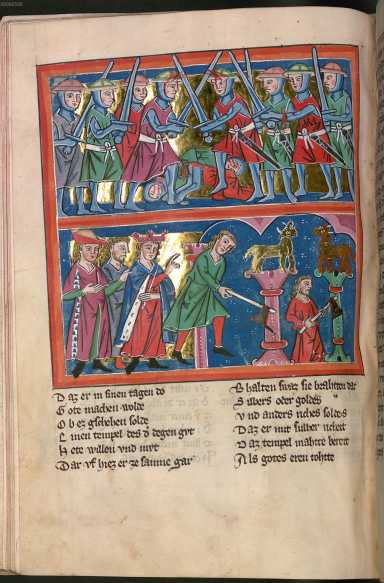 Daz er in sinen tagen do
Gote machen wolde
Ob ez geschehen solde
Einen tempel des d' degen gůt
Hete willen vnd můt
Dar vf hiez er ze samne gar
Behalten swaz sie brahten dar
Silbers oder goldes
Vnd anders riches soldes
Daz er mit silber richeit
Daz tempel mahte bereit
Als gotes eren tohte